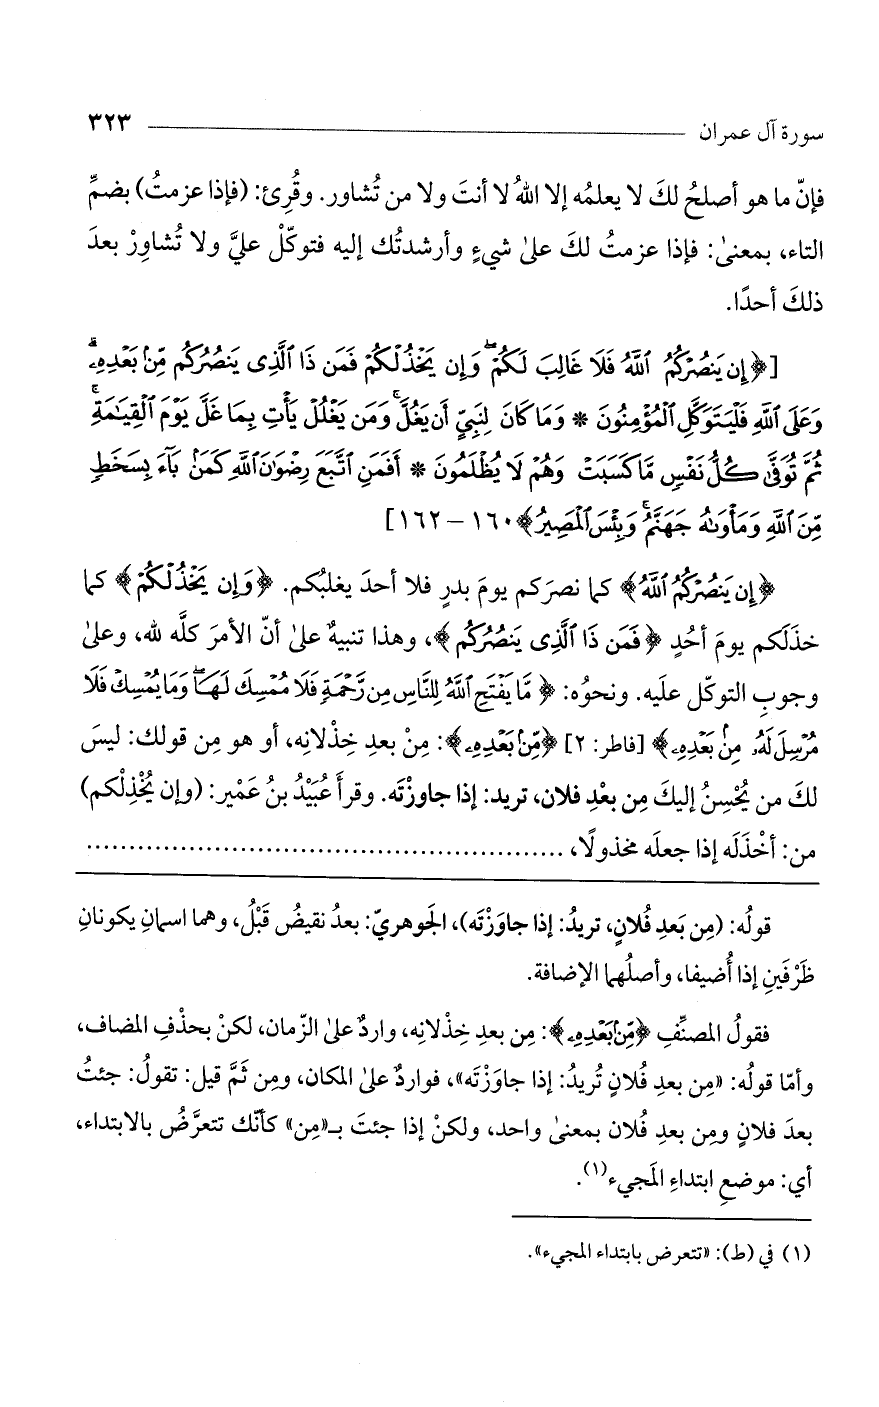 سورة آل عمران ٣٢٣
فإنّ ما هو أصلحُ لكَ لا يعلمُه إلا اللهُ لا أنتَ ولا من تُشاور. وقُرِئ: (فإذا عزمتُ) بضمِّ
التاء، بمعنىٰ: فإذا عزمتُ لكَ علىٰ شيءٍ وأرشدتُك إليه فتوكّلْ عليَّ ولا تُشاوِرْ بعدَ
ذلكَ أحدًا.
[﴿إِن يَنصُرْكُمُ ٱللَّهُ فَلَا غَالِبَ لَكُمْ ۖ وَإِن يَخْذُلْكُمْ فَمَن ذَا ٱلَّذِى يَنصُرُكُم مِّنۢ بَعْدِهِۦ ۗ
وَعَلَى ٱللَّهِ فَلْيَتَوَكَّلِ ٱلْمُؤْمِنُونَ * وَمَا كَانَ لِنَبِيٍّ أَن يَغُلَّ ۚ وَمَن يَغْلُلْ يَأْتِ بِمَا غَلَّ يَوْمَ ٱلْقِيَٰمَةِ ۚ
ثُمَّ تُوَفَّىٰ كُلُّ نَفْسٍ مَّا كَسَبَتْ وَهُمْ لَا يُظْلَمُونَ * أَفَمَنِ ٱتَّبَعَ رِضْوَٰنَ ٱللَّهِ كَمَنۢ بَآءَ بِسَخَطٍ
مِّنَ ٱللَّهِ وَمَأْوَىٰهُ جَهَنَّمُ ۚ وَبِئْسَ ٱلْمَصِيرُ﴾ ١٦٠ – ١٦٢]
﴿إِن يَنصُرْكُمُ ٱللَّهُ﴾ كما نصرَكم يومَ بدرٍ فلا أحدَ يغلبُكم. ﴿وَإِن يَخْذُلْكُمْ﴾ كما
خذَلَكم يومَ أُحُدٍ ﴿فَمَن ذَا ٱلَّذِى يَنصُرُكُم﴾، وهذا تنبيهٌ علىٰ أنّ الأمرَ كلَّه لله، وعلىٰ
وجوبِ التوكّل علَيه. ونحوُه: ﴿مَّا يَفْتَحِ ٱللَّهُ لِلنَّاسِ مِن رَّحْمَةٍ فَلَا مُمْسِكَ لَهَا ۖ وَمَا يُمْسِكْ فَلَا
مُرْسِلَ لَهُۥ مِنۢ بَعْدِهِۦ﴾ [فاطر: ٢] ﴿مِّنۢ بَعْدِهِۦ﴾: مِنْ بعدِ خِذْلانِه، أو هو مِن قولك: ليسَ
لكَ من يُحْسِنُ إليكَ مِن بعْدِ فلان، تريد: إذا جاوزْتَه. وقرأَ عُبَيْدُ بنُ عَمْير: (وإن يُخْذِلْكم)
من: أخْذَلَه إذا جعلَه مخذولًا، ........................................................
قولُه: (مِن بَعدِ فُلانٍ، تريدُ: إذا جاوَزْتَه)، الجَوهريّ: بعدُ نقيضُ قَبْلُ، وهما اسمانِ يكونانِ
ظَرْفَينِ إذا أُضيفا، وأصلُهما الإضافة.
فقولُ المصنِّفِ ﴿مِّنۢ بَعْدِهِۦ﴾: مِن بعدِ خِذْلانِه، واردٌ علىٰ الزّمان، لكنْ بحذْفِ المضاف،
وأمّا قولُه: «مِن بعدِ فُلانٍ تُريدُ: إذا جاوَزْتَه»، فواردٌ علىٰ المكان، ومِن ثَمَّ قيل: تقولُ: جئتُ
بعدَ فلانٍ ومِن بعدِ فُلان بمعنىٰ واحد، ولكنْ إذا جئتَ بـ«مِن» كأنّك تتعرَّضُ بالابتداء،
أي: موضعِ ابتداءِ المَجيء(١).
(١) في (ط): «تتعرض بابتداء المجيء».